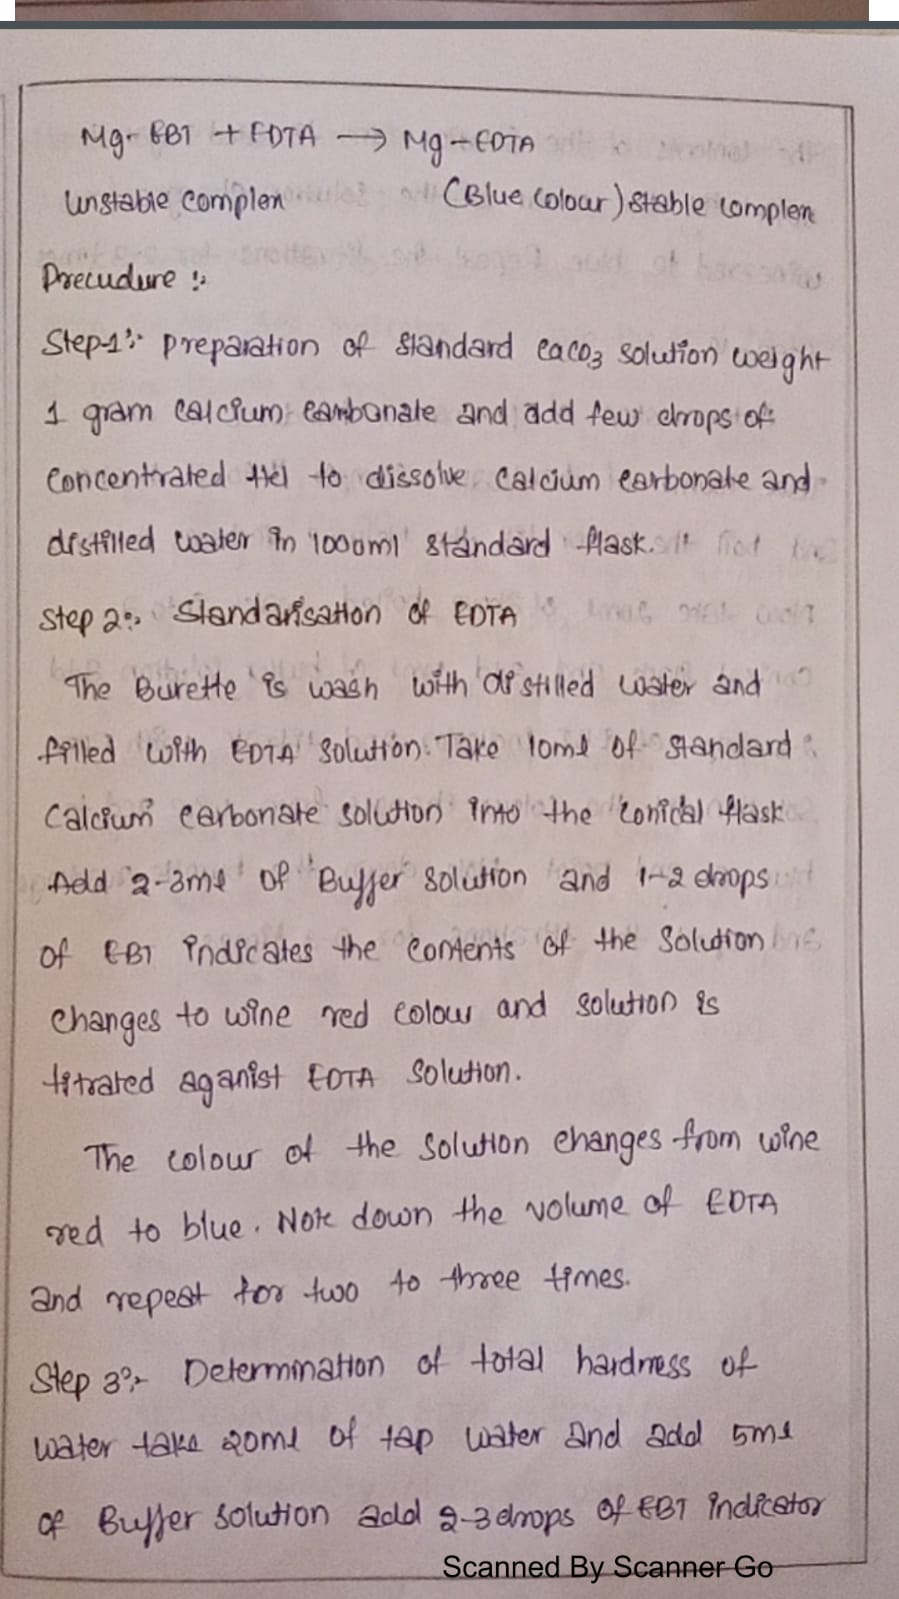 Mg-EBT + EDTA → Mg-EDTA
Unstable complex (Blue colour) stable complex
Precudure :-
Step-1:- preparation of standard caco3 solution weight
1 gram calcium carbonate and add few drops of
concentrated Hcl to dissolve calcium carbonate and
distilled water in 1000ml standard flask.
Step 2:- Standarisation of EDTA
The Burette is wash with distilled water and
filled with EDTA solution. Take 10ml of standard
calcium carbonate solution into the conical flask
Add 2-3ml of Buffer solution and 1-2 drops
of EBT indicates the contents of the solution
changes to wine red colour and solution is
titrated aganist EDTA solution.
The colour of the solution changes from wine
red to blue. Note down the volume of EDTA
and repeat for two to three times.
Step 3:- Determination of total hardness of
water take 20ml of tap water and add 5ml
of Buffer solution add 2-3 drops of EBT indicator
Scanned By Scanner Go